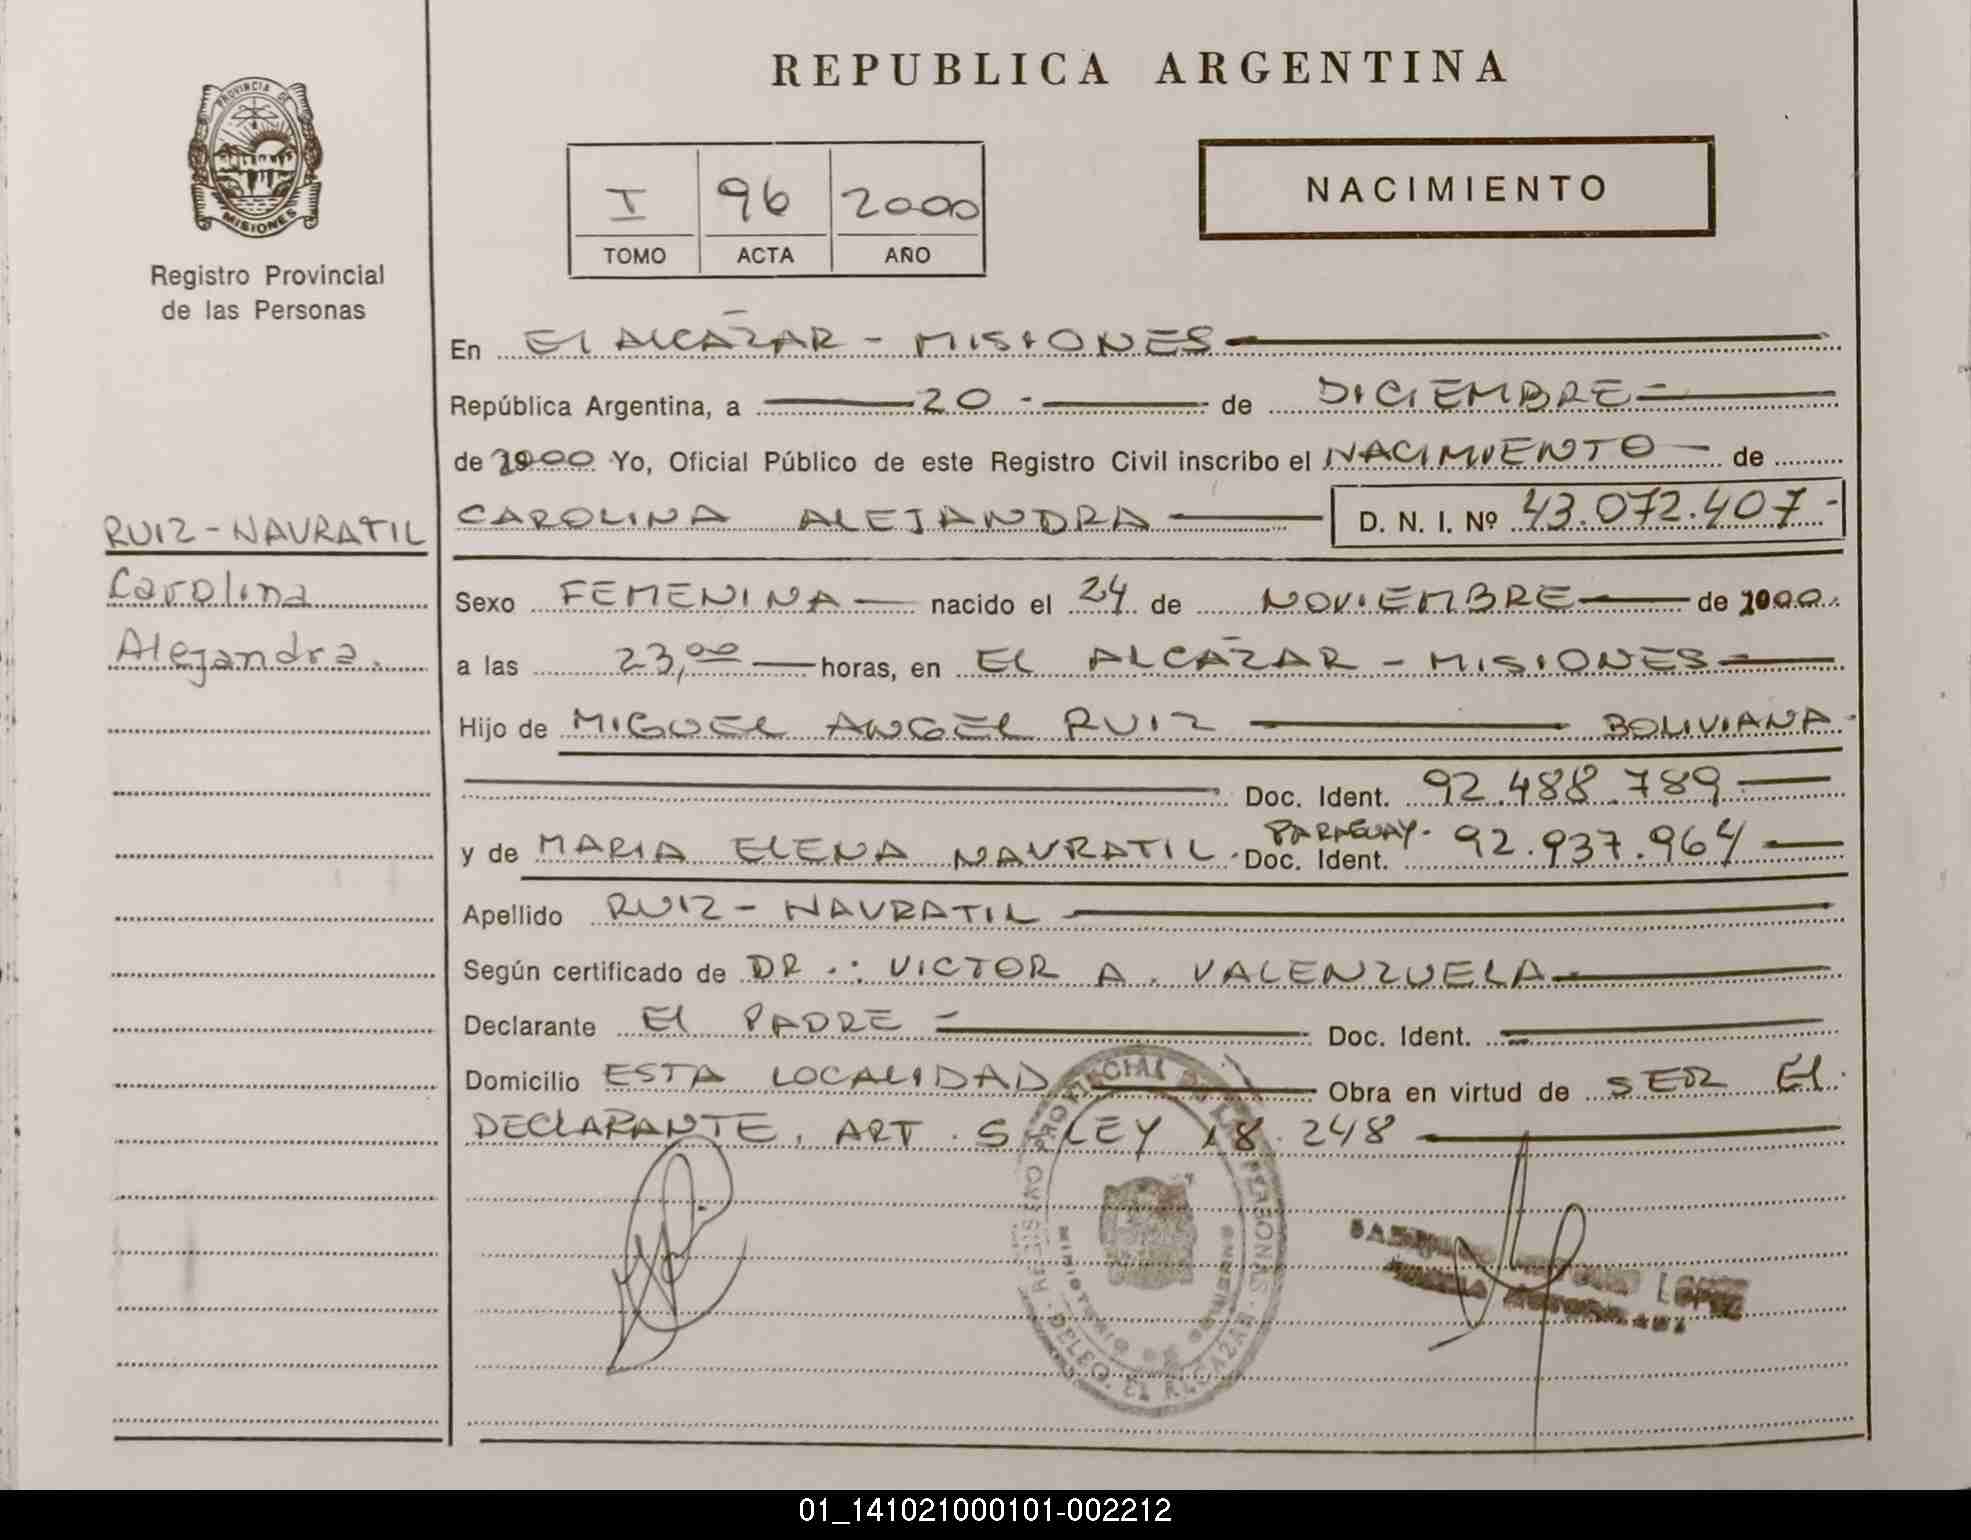 REPUBLICA ARGENTINA
PROVINCIA DE
MISIONES
Registro Provincial
de las Personas
I 96 2000
TOMO ACTA AÑO
NACIMIENTO
En El ALCAZAR - MISIONES
República Argentina, a 20 - de DICIEMBRE -
de 2000 Yo, Oficial Público de este Registro Civil inscribo el NACIMIENTO - de
RUIZ - NAVRATIL
Carolina
Alejandra.
CAROLINA ALEJANDRA D. N. I. Nº 43.072.407 -
Sexo FEMENINA nacido el 24 de NOVIEMBRE de 2000.
a las 23,00 horas, en EL ALCAZAR - MISIONES
Hijo de MIGUEL ANGEL RUIZ BOLIVIANA -
Doc. Ident. 92.488.789
y de MARIA ELENA NAVRATIL - PARAGUAY - Doc. Ident. 92.937.964
Apellido RUIZ - NAVRATIL
Según certificado de DR.: VICTOR A. VALENZUELA
Declarante El PADRE - Doc. Ident.
Domicilio ESTA LOCALIDAD Obra en virtud de SER El
DECLARANTE. ART. 5 LEY 18.248
REGISTRO PROVINCIAL DE LAS PERSONAS
MINISTERIO DE GOBIERNO
DELEG. EL ALCAZAR
LOPEZ
01_141021000101-002212